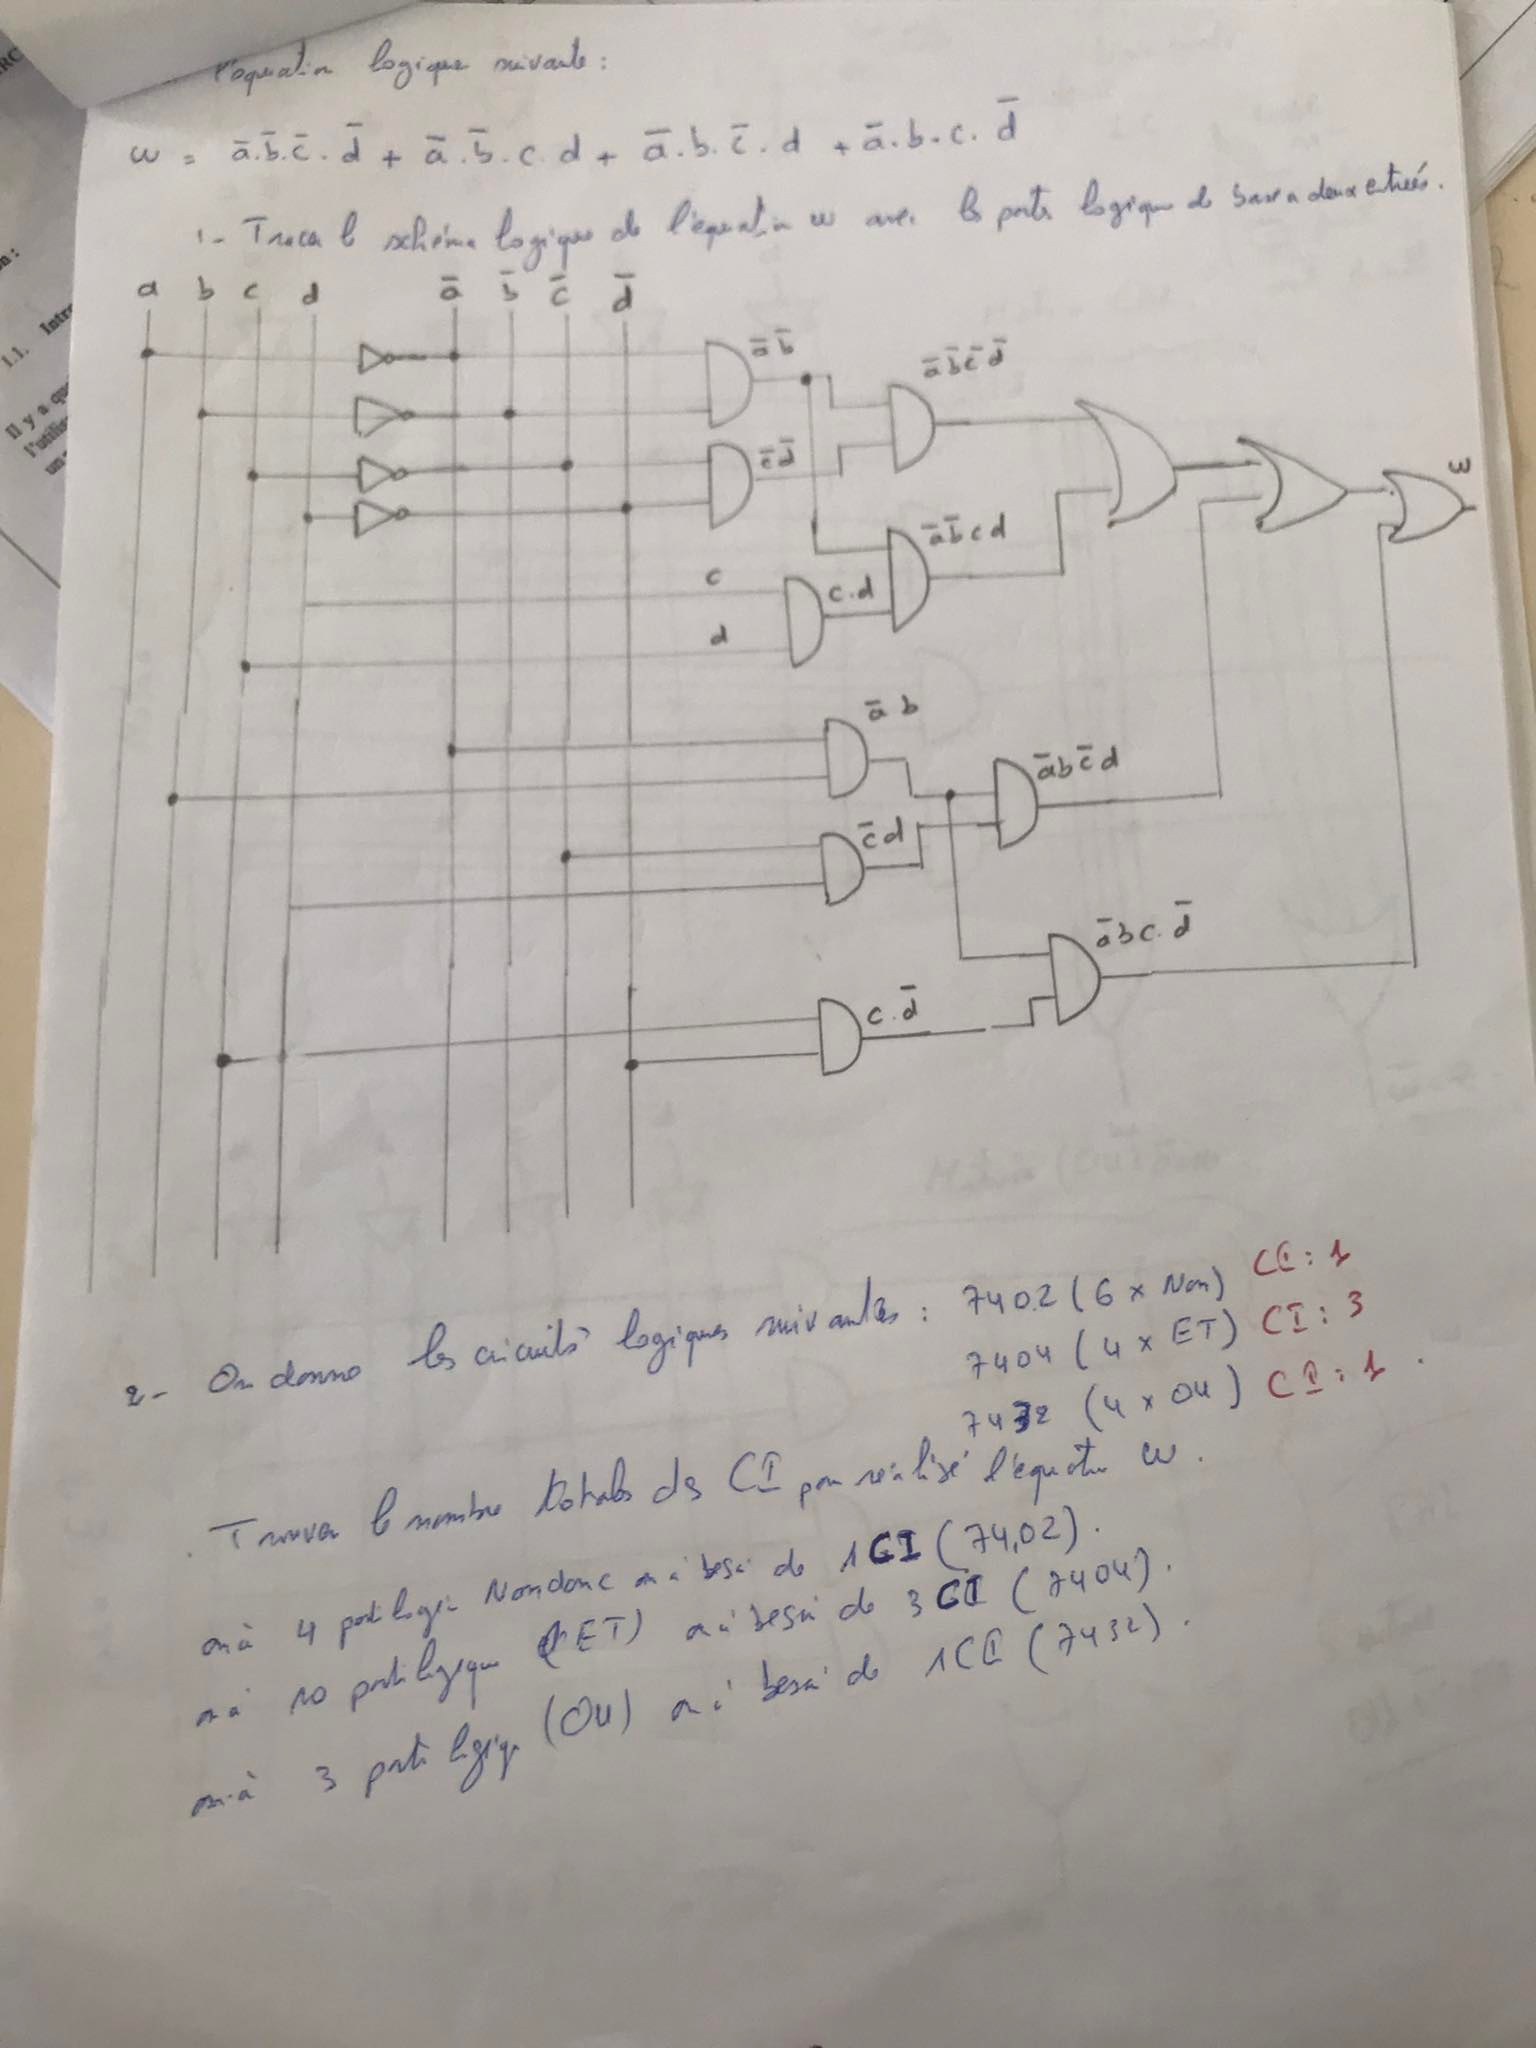 l'equation logique suivante :
ω = a̅.b̅.c̅.d̅ + a̅.b̅.c.d + a̅.b.c̅.d + a̅.b.c.d̅
1- Tracer le schéma logique de l'équation ω avec les ports logique de base a deux entreés.
a b c d a̅ b̅ c̅ d̅
a̅ b̅
a̅ b̅ c̅ d̅
c̅ d̅
ω
a̅ b̅ c d
c
c.d
d
a̅ b
a̅ b c̅ d
c̅ d
a̅ b c. d̅
c. d̅
2- On donne les circuits logiques suivantes : 7402 (6 x Non) CI : 1
7404 (4 x ET) CI : 3
7432 (4 x OU) CI : 1 .
. Trouver le nombre totales des CI pour réalisé l'équation ω .
on à 4 port logique Non donc on a besoi de 1 CI (7402).
on à 10 port logique (ET) on a besoi de 3 CI (7404).
on à 3 port logiq (OU) on a besoi de 1 CI (7432).
1.1. Intro
Il y a que
l'utilis
un